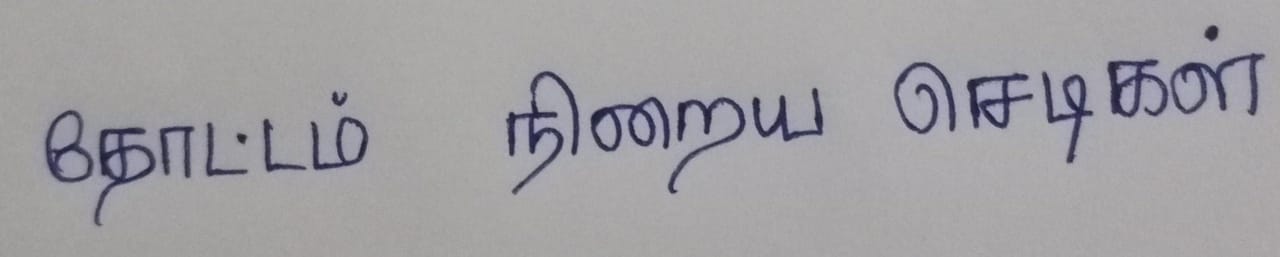 தோட்டம் நிறைய செடிகள்